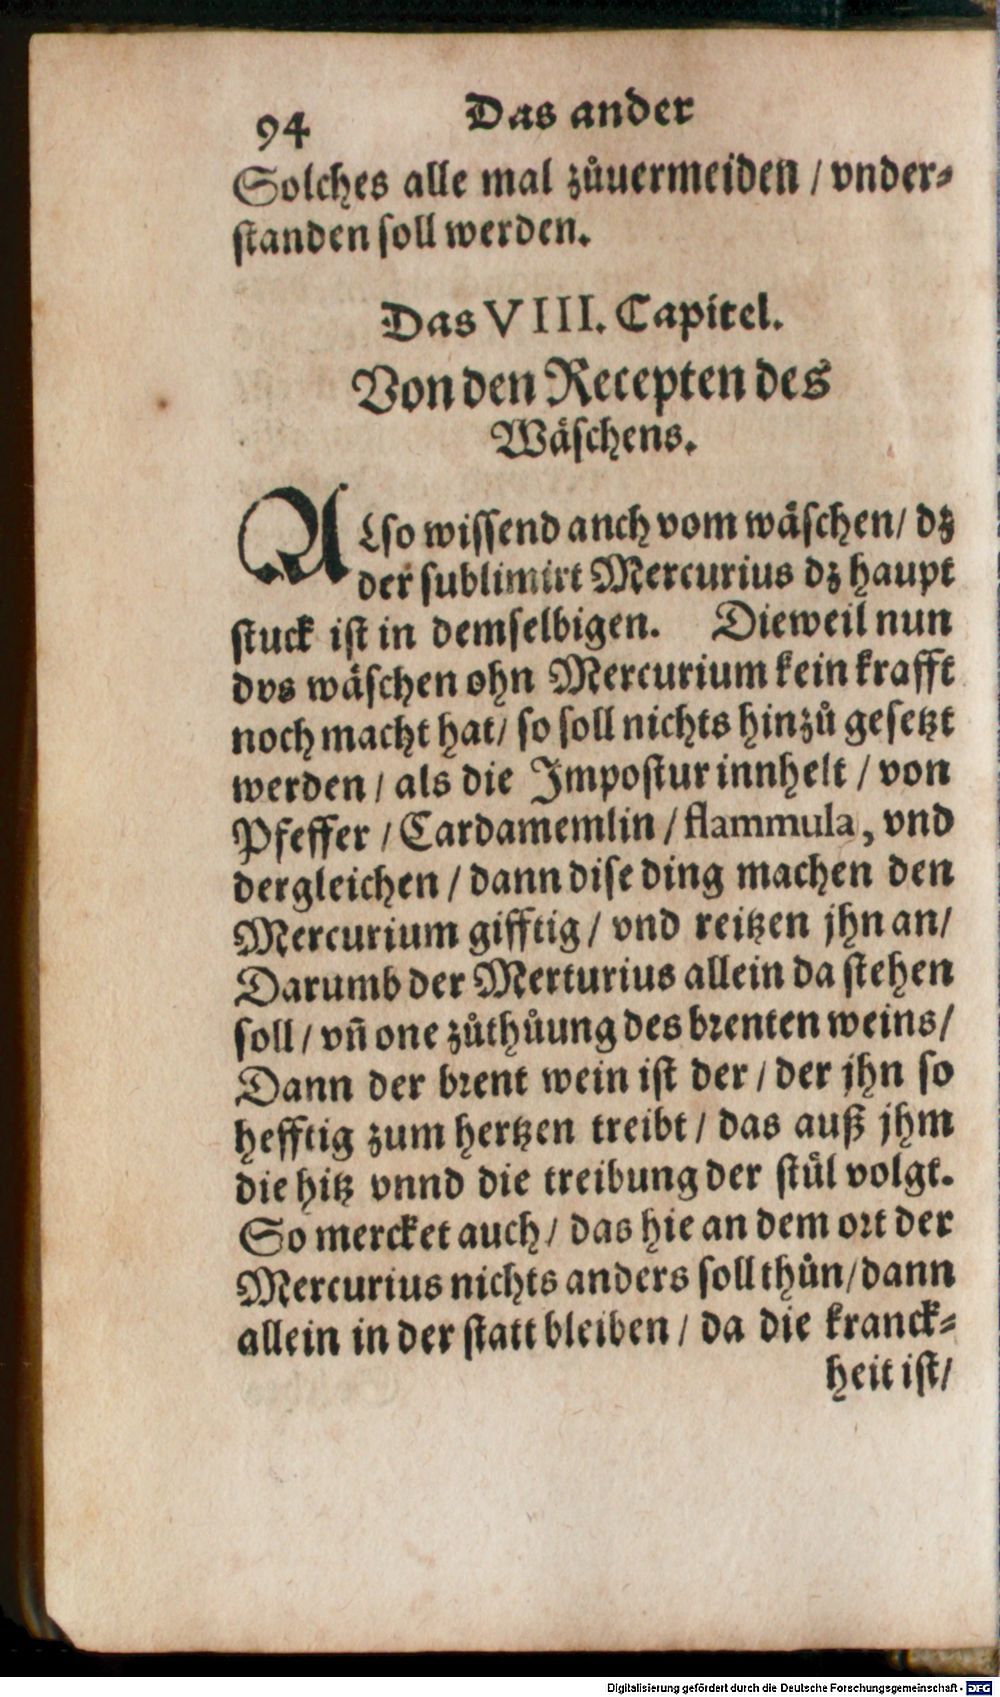 94 Das ander
Solches alle mal zůuermeiden / vnder⸗
standen soll werden.
Das VIII. Capitel.
Von den Recepten des
Wäschens.
ALso wissend anch vom wäschen / dz
der sublimirt Mercurius dz haupt
stuck ist in demselbigen. Dieweil nun
dvs wäschen ohn Mercurium kein krafft
noch macht hat / so soll nichts hinzů gesetzt
werden / als die Impostur innhelt / von
Pfeffer / Cardamemlin / flammula, vnd
dergleichen / dann dise ding machen den
Mercurium gifftig / vnd reitzen jhn an /
Darumb der Merturius allein da stehen
soll / vñ one zůthůung des brenten weins /
Dann der brent wein ist der / der jhn so
hefftig zum hertzen treibt / das auß jhm
die hitz vnnd die treibung der stůl volgt.
So mercket auch / das hie an dem ort der
Mercurius nichts anders soll thůn / dann
allein in der statt bleiben / da die kranck⸗
heit ist /
Digitalisierung gefördert durch die Deutsche Forschungsgemeinschaft - DFG